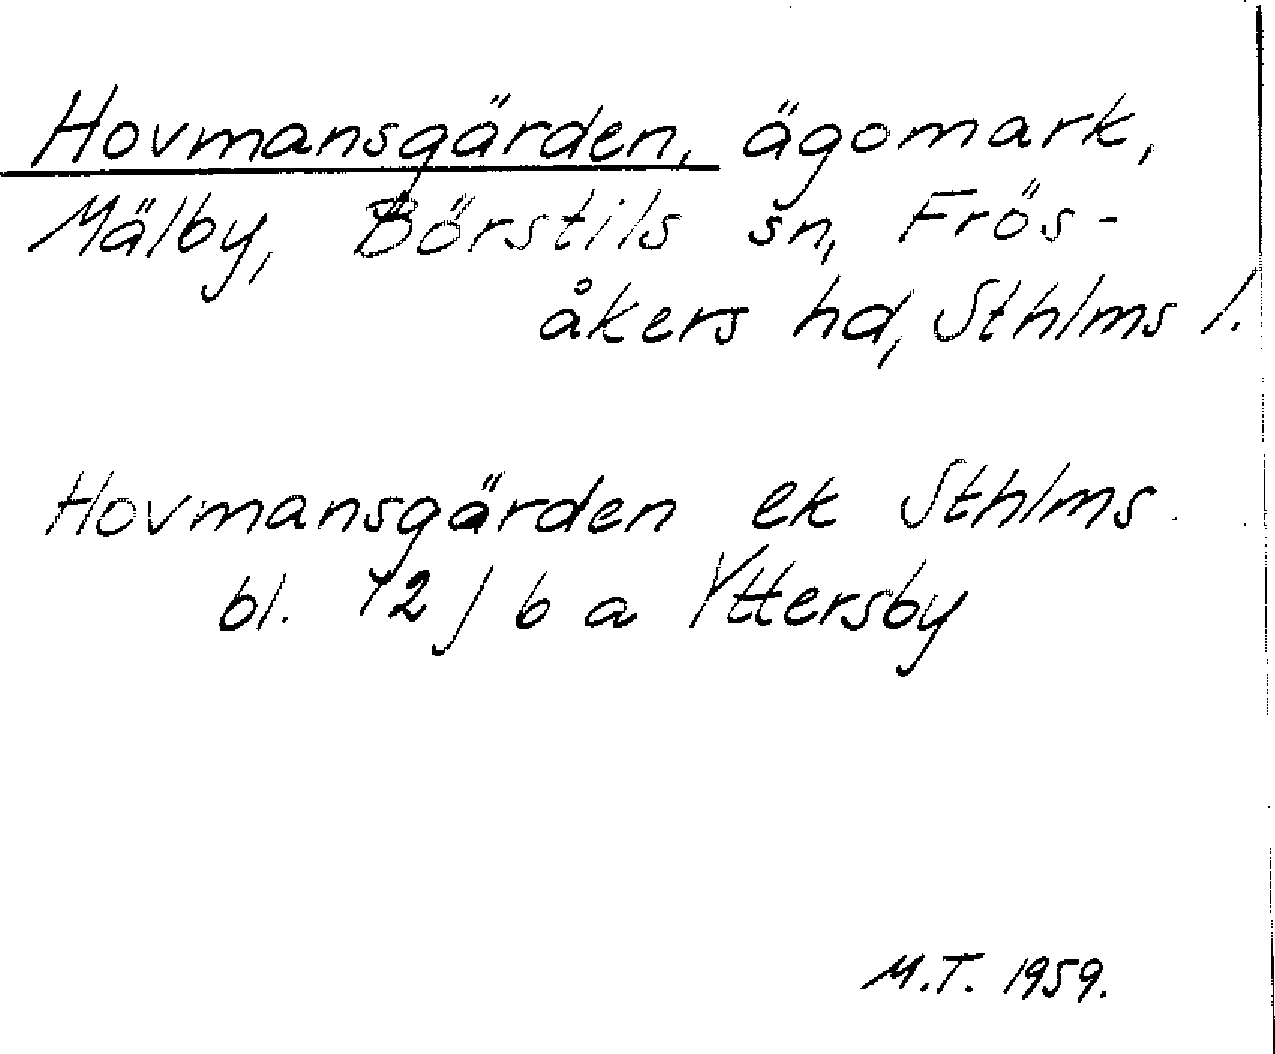 Hovmansgärden, ägomark,
Mälby, Börstils sn, Frös-
åkers hd, Sthlms l.
Hovmansgärden ek Sthlms
bl. 12 j 6 a Yttersby
M.T. 1959.